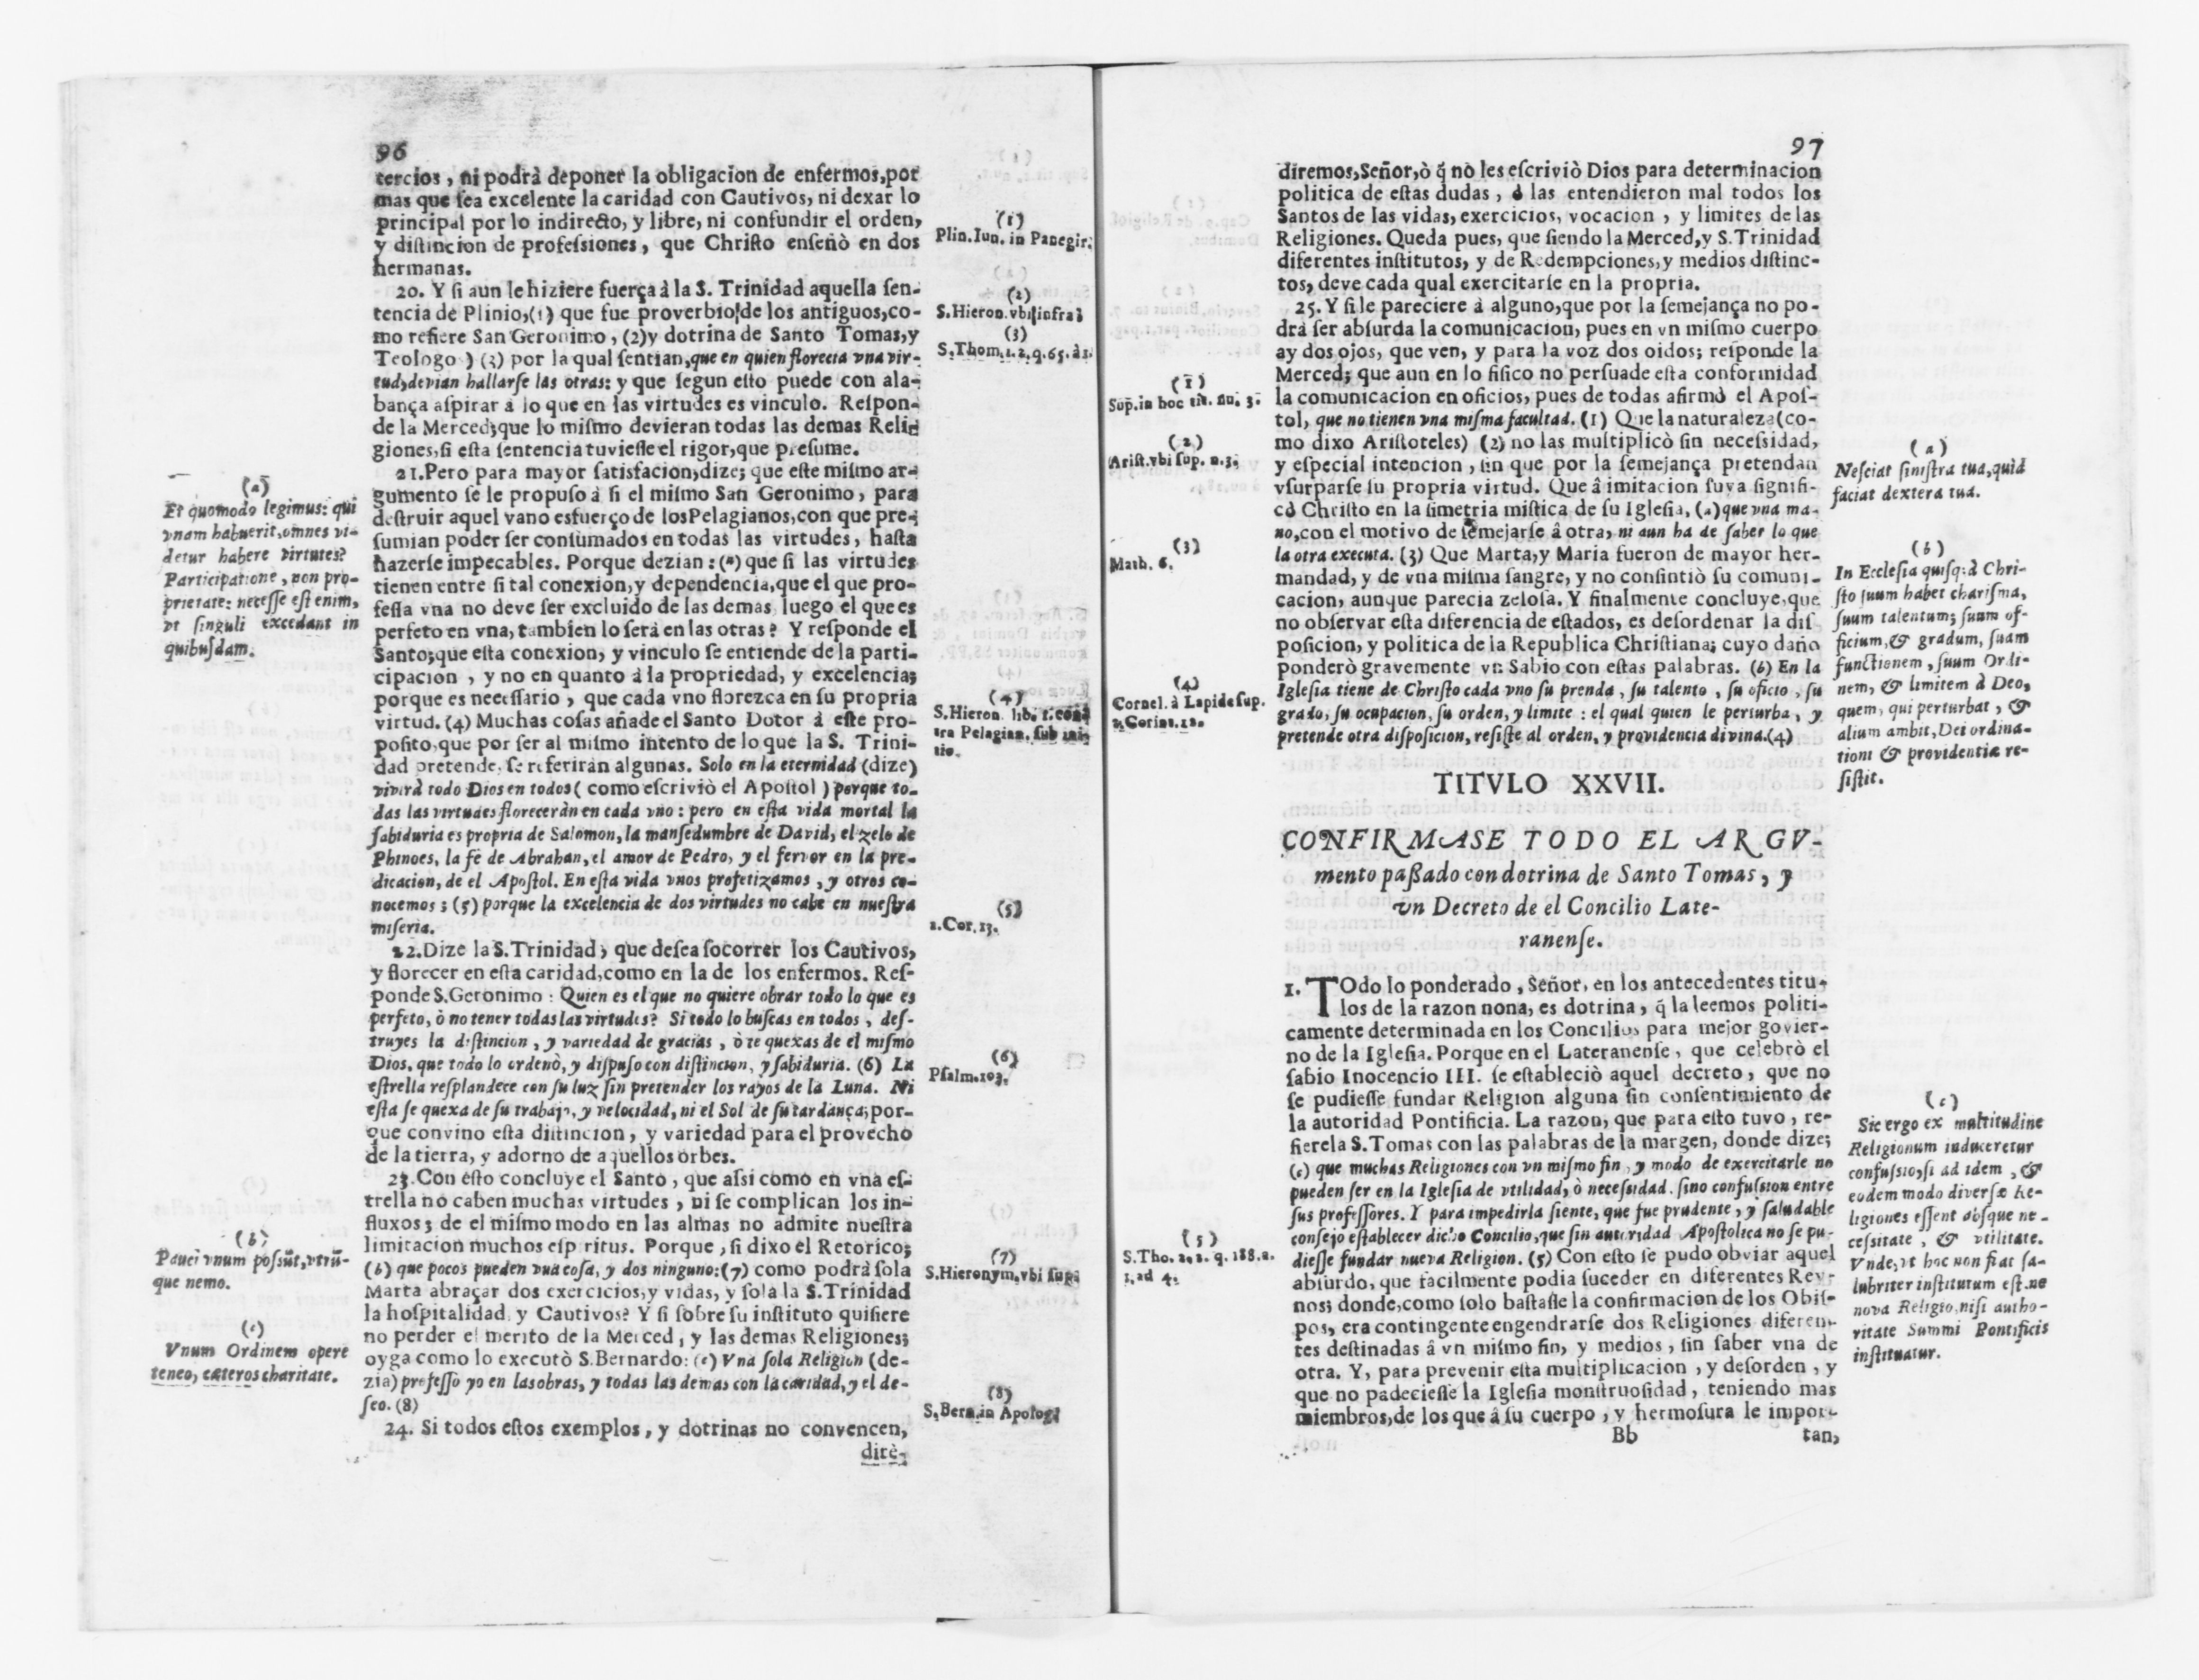 96
tercios, ni podrà deponer la obligacion de enfermos,por
mas que ſea excelente la caridad con Cautivos, ni dexar lo
principal por lo indirecto, y libre, ni confundir el orden,
y diſtincion de profeſsiones, que Chriſto enſeñò en dos
hermanas.
20. Y ſi aun le hiziere fuerça à la S. Trinidad aquella ſen-
tencia de Plinio,(1) que fue proverbio de los antiguos,co-
mo refiere San Geronimo, (2)y dotrina de Santo Tomas,y
Teologo) (3) por la qual ſentian,que en quien florecia vna vir-
tud,devian hallarſe las otras: y que ſegun eſto puede con ala-
bança aſpirar à lo que en las virtudes es vinculo. Reſpon-
de la Merced;que lo miſmo devieran todas las demas Reli-
giones,ſi eſta ſentencia tuvieſſe el rigor,que preſume.
21.Pero para mayor ſatisfacion,dize; que eſte miſmo ar-
gumento ſe le propuſo à ſi el miſmo San Geronimo, para
deſtruir aquel vano esfuerço de losPelagianos,con que pre-
ſumian poder ſer conſumados en todas las virtudes, haſta
hazerſe impecables. Porque dezian:(a) que ſi las virtudes
tienen entre ſi tal conexion,y dependencia,que el que pro-
feſſa vna no deve ſer excluido de las demas, luego el que es
perfeto en vna, tambien lo ſerà en las otras? Y reſponde el
Santo;que eſta conexion, y vinculo ſe entiende de la parti-
cipacion, y no en quanto à la propriedad, y excelencia;
porque es neceſſario, que cada vno florezca en ſu propria
virtud. (4) Muchas coſas añade el Santo Dotor à eſte pro-
poſito,que por ſer al miſmo intento de lo que la S. Trini-
dad pretende, ſe referiràn algunas. Solo en la eternidad (dize)
vivirà todo Dios en todos (como eſcriviò el Apoſtol) porque to-
das las virtudes floreceràn en cada vno: pero en eſta vida mortal la
ſabiduria es propria de Salomon, la manſedumbre de David, el zelo de
Phinoes, la fè de Abrahan, el amor de Pedro, y el fervor en la pre-
dicacion, de el Apoſtol. En eſta vida vnos profetizamos, y otros co-
nocemos; (5) porque la excelencia de dos virtudes no cabe en nueſtra
miſeria.
22.Dize la S.Trinidad, que deſea ſocorrer los Cautivos,
y florecer en eſta caridad,como en la de los enfermos. Reſ-
ponde S.Geronimo: Quien es el que no quiere obrar todo lo que es
perfeto, ò no tener todas las virtudes? Si todo lo buſcas en todos, deſ-
truyes la diſtincion, y variedad de gracias, ò te quexas de el miſmo
Dios, que todo lo ordenò, y diſpuſo con diſtincion, y ſabiduria. (6) La
eſtrella reſplandece con ſu luz ſin pretender los rayos de la Luna. Ni
eſta ſe quexa de ſu trabajo, y velocidad, ni el Sol de ſu tardança; por-
que convino eſta diſtincion, y variedad para el provecho
de la tierra, y adorno de aquellos orbes.
23.Con eſto concluye el Santo, que aſsi como en vna eſ-
trella no caben muchas virtudes, ni ſe complican los in-
fluxos; de el miſmo modo en las almas no admite nueſtra
limitacion muchos eſpiritus. Porque, ſi dixo el Retorico;
(b) que pocos pueden vna coſa, y dos ninguno:(7) como podrà ſola
Marta abraçar dos exercicios,y vidas, y ſola la S.Trinidad
la hoſpitalidad, y Cautivos? Y ſi ſobre ſu inſtituto quiſiere
no perder el merito de la Merced, y las demas Religiones;
oyga como lo executò S.Bernardo: (c) Vna ſola Religion (de-
zia) profeſſo yo en las obras, y todas las demas con la caridad, y el de-
ſeo. (8)
24. Si todos eſtos exemplos, y dotrinas no convencen,
dirè-
(a)
Et quomodo legimus: qui
vnam habuerit,omnes vi-
detur habere virtutes?
Participatione, non pro-
prietate: neceſſe eſt enim,
vt ſinguli excedant in
quibuſdam.
(b)
Pauci vnum poſsũt,vtrũ-
que nemo.
(c)
Vnum Ordinem opere
teneo, cæteros charitate.
(1)
Plin.Iun. in Panegir.
(2)
S.Hieron.vbi infra
(3)
S.Thom.1.2.q.65.à1.
(4)
S.Hieron. lib. 1.con-
tra Pelagian. ſub ini-
tio.
(5)
1.Cor.13.
(6)
Pſalm.103.
(7)
S.Hieronym.vbi ſup.
(8)
S.Bern.in Apolog.
97
diremos,Señor,ò q̃ no les eſcriviò Dios para determinacion
politica de eſtas dudas, ò las entendieron mal todos los
Santos de las vidas, exercicios, vocacion, y limites de las
Religiones. Queda pues, que ſiendo la Merced,y S.Trinidad
diferentes inſtitutos, y de Redempciones,y medios diſtinc-
tos, deve cada qual exercitarſe en la propria.
25. Y ſi le pareciere à alguno,que por la ſemejança no po-
drà ſer abſurda la comunicacion, pues en vn miſmo cuerpo
ay dos ojos, que ven, y para la voz dos oidos; reſponde la
Merced; que aun en lo fiſico no perſuade eſta conformidad
la comunicacion en oficios, pues de todas afirmò el Apoſ-
tol, que no tienen vna miſma facultad. (1) Que la naturaleza (co-
mo dixo Ariſtoteles) (2) no las multiplicò ſin neceſsidad,
y eſpecial intencion, ſin que por la ſemejança pretendan
vſurparſe ſu propria virtud. Que â imitacion ſuya ſignifi-
cò Chriſto en la ſimetria miſtica de ſu Igleſia, (a) que vna ma-
no,con el motivo de ſemejarſe â otra, ni aun ha de ſaber lo que
la otra executa. (3) Que Marta,y Maria fueron de mayor her-
mandad, y de vna miſma ſangre, y no conſintiò ſu comuni-
cacion, aunque parecia zeloſa. Y finalmente concluye,que
no obſervar eſta diferencia de eſtados, es deſordenar la diſ
poſicion, y politica de la Republica Chriſtiana; cuyo daño
ponderò gravemente vn Sabio con eſtas palabras. (b) En la
Igleſia tiene de Chriſto cada vno ſu prenda, ſu talento, ſu oficio, ſu
grado, ſu ocupacion, ſu orden, y limite: el qual quien le perturba, y
pretende otra diſpoſicion, reſiſte al orden, y providencia divina.(4)
TITVLO XXVII.
CONFIRMASE TODO EL ARGV-
mento paſſado con dotrina de Santo Tomas, y
vn Decreto de el Concilio Late-
ranenſe.
1. TOdo lo ponderado, Señor, en los antecedentes titu-
los de la razon nona, es dotrina, q̃ la leemos politi-
camente determinada en los Concilios para mejor govier-
no de la Igleſia. Porque en el Lateranenſe, que celebrò el
ſabio Inocencio III. ſe eſtableciò aquel decreto, que no
ſe pudieſſe fundar Religion alguna ſin conſentimiento de
la autoridad Pontificia. La razon, que para eſto tuvo, re-
fierela S.Tomas con las palabras de la margen, donde dize;
(c) que muchas Religiones con vn miſmo fin, y modo de exercitarle no
pueden ſer en la Igleſia de vtilidad, ò neceſsidad, ſino confuſsion entre
ſus profeſſores. Y para impedirla ſiente, que fue prudente, y ſaludable
conſejo eſtablecer dicho Concilio, que ſin autoridad Apoſtolica no ſe pu-
dieſſe fundar nueva Religion. (5) Con eſto ſe pudo obviar aquel
abſurdo, que facilmente podia ſuceder en diferentes Rey-
nos; donde,como ſolo baſtaſſe la confirmacion de los Obiſ-
pos, era contingente engendrarſe dos Religiones diferen-
tes deſtinadas â vn miſmo fin, y medios, ſin ſaber vna de
otra. Y, para prevenir eſta multiplicacion, y deſorden, y
que no padecieſſe la Igleſia monſtruoſidad, teniendo mas
miembros,de los que â ſu cuerpo, y hermoſura le impor-
Bb tan,
(1)
Sup.in hoc tit. nu. 3.
(2)
Ariſt.vbi ſup. n.3.
(3)
Math. 6.
(4)
Cornel. à Lapide ſup.
1.Corint.12.
(5)
S.Tho. 2.2. q. 188.a.
1.ad 4.
(a)
Neſciat ſiniſtra tua,quid
faciat dextera tua.
(b)
In Eccleſia quiſq; à Chri-
ſto ſuum habet chariſma,
ſuum talentum; ſuum of-
ficium,& gradum, ſuam
functionem, ſuum Ordi-
nem, & limitem à Deo,
quem, qui perturbat, &
alium ambit,Dei ordina-
tioni & providentiæ re-
ſiſtit.
(c)
Sic ergo ex multitudine
Religionum induceretur
confuſsio,ſi ad idem, &
eodem modo diverſæ Re-
ligiones eſſent abſque ne-
ceſsitate, & vtilitate.
Vnde,vt hoc non fiat ſa-
lubriter inſtitutum eſt,ne
nova Religio,niſi autho-
ritate Summi Pontificis
inſtituatur.